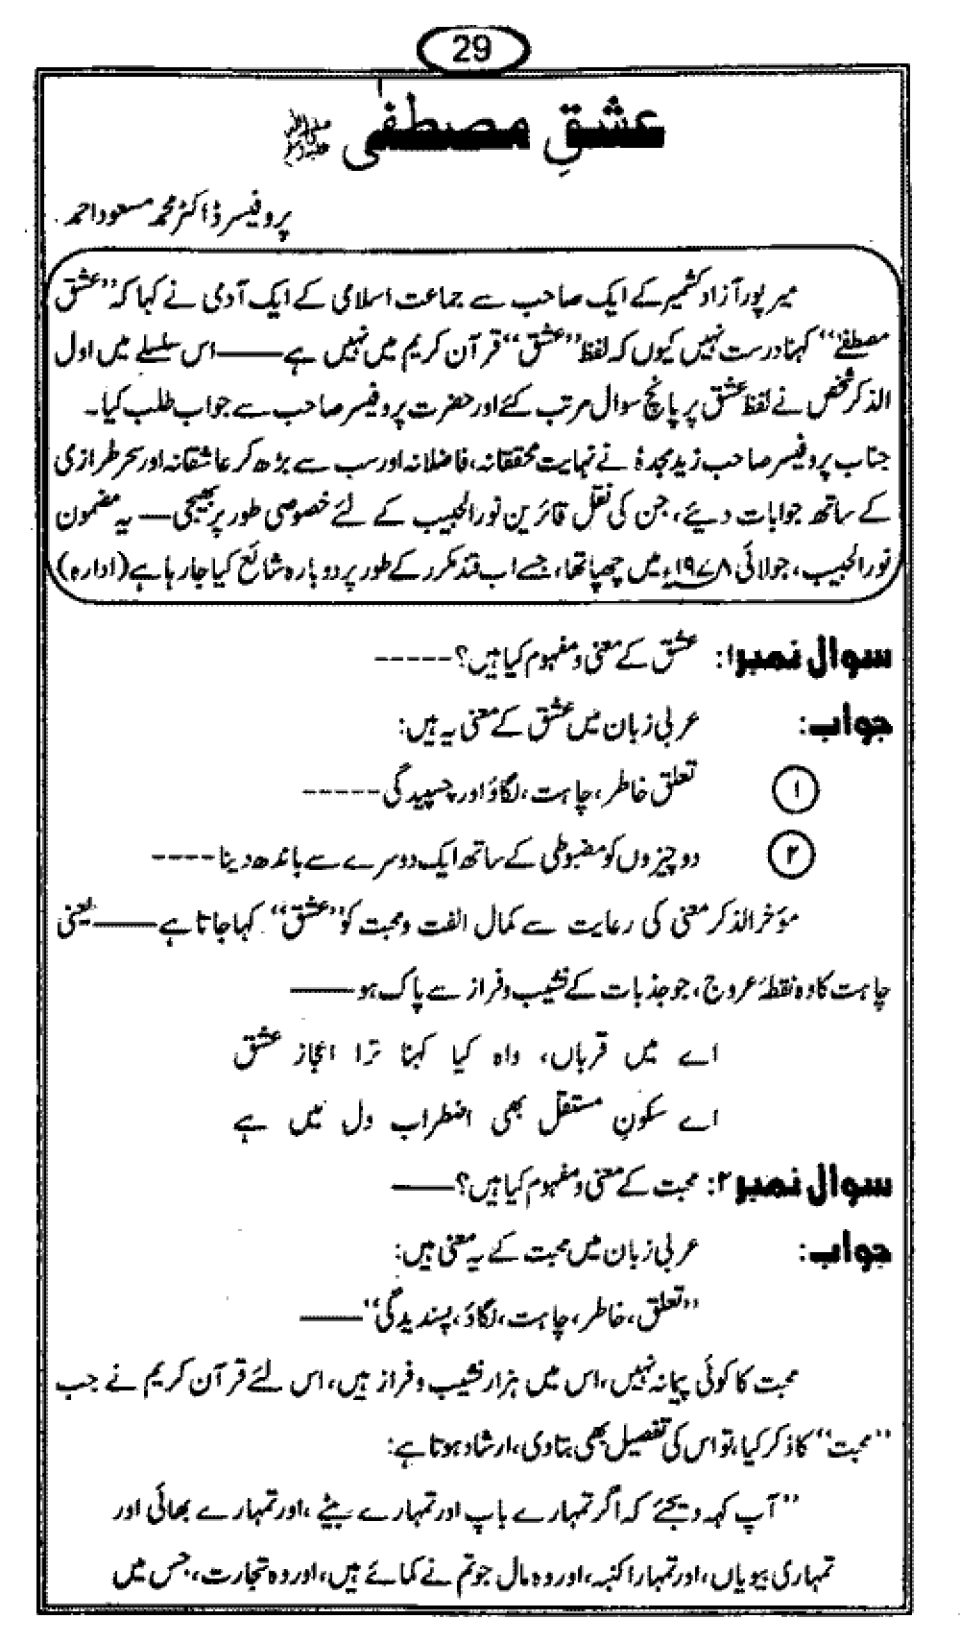 29
عشقِ مصطفٰی ﷺ
پروفیسر ڈاکٹر محمد مسعود احمد
میر پور آزاد کشمیر کے ایک صاحب سے جماعت اسلامی کے ایک آدمی نے کہا کہ ”عشق
مصطفےٰ“ کہنا درست نہیں کیوں کہ لفظ ”عشق“ قرآن کریم میں نہیں ہے —— اس سلسلے میں اول
الذکر شخص نے لفظ عشق پر پانچ سوال مرتب کئے اور حضرت پروفیسر صاحب سے جواب طلب کیا۔
جناب پروفیسر صاحب زید مجدہٗ نے نہایت محققانہ، فاضلانہ اور سب سے بڑھ کر عاشقانہ اور سحر طرازی
کے ساتھ جوابات دیئے، جن کی نقل قارئین نور الحبیب کے لئے خصوصی طور پر بھیجی — یہ مضمون
نور الحبیب، جولائی ۱۹۷۸ء میں چھپا تھا، جسے اب قند مکرر کے طور پر دوبارہ شائع کیا جا رہا ہے (ادارہ)
سوال نمبر ۱: عشق کے معنی و مفہوم کیا ہیں؟ -----
جواب: عربی زبان میں عشق کے معنی یہ ہیں:
۱ تعلق خاطر، چاہت، لگاؤ اور چسپیدگی -----
۲ دو چیزوں کو مضبوطی کے ساتھ ایک دوسرے سے باندھ دینا ----
مؤخر الذکر معنی کی رعایت سے کمال الفت و محبت کو ”عشق“ کہا جاتا ہے —— یعنی
چاہت کا وہ نقطۂ عروج، جو جذبات کے نشیب و فراز سے پاک ہو ——
اے میں قرباں، واہ کیا کہنا ترا اعجاز عشق
اے سکونِ مستقل بھی اضطراب دل میں ہے
سوال نمبر ۲: محبت کے معنی و مفہوم کیا ہیں؟ ——
جواب: عربی زبان میں محبت کے یہ معنی ہیں:
”تعلق، خاطر، چاہت، لگاؤ، پسندیدگی“ ——
محبت کا کوئی پیمانہ نہیں، اس میں ہزار نشیب و فراز ہیں، اس لئے قرآن کریم نے جب
”محبت“ کا ذکر کیا، تو اس کی تفصیل بھی بتا دی، ارشاد ہوتا ہے:
”آپ کہہ دیجئے کہ اگر تمہارے باپ اور تمہارے بیٹے، اور تمہارے بھائی اور
تمہاری بیویاں، اور تمہارا کنبہ، اور وہ مال جو تم نے کمائے ہیں، اور وہ تجارت، جس میں